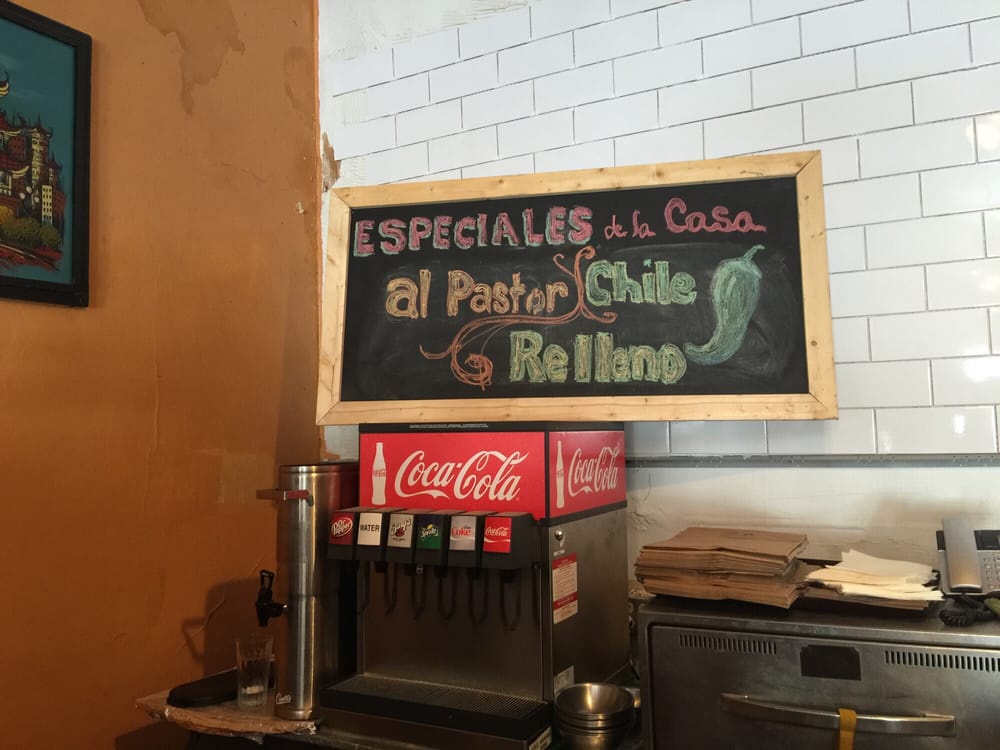 ESPECIALES de la Casa
al Pastor Y Chile
Relleno
Coca-Cola
Coca-Cola
Dr Pepper
WATER
Barq's
Sprite
Diet Coke
Coca-Cola
Curtis